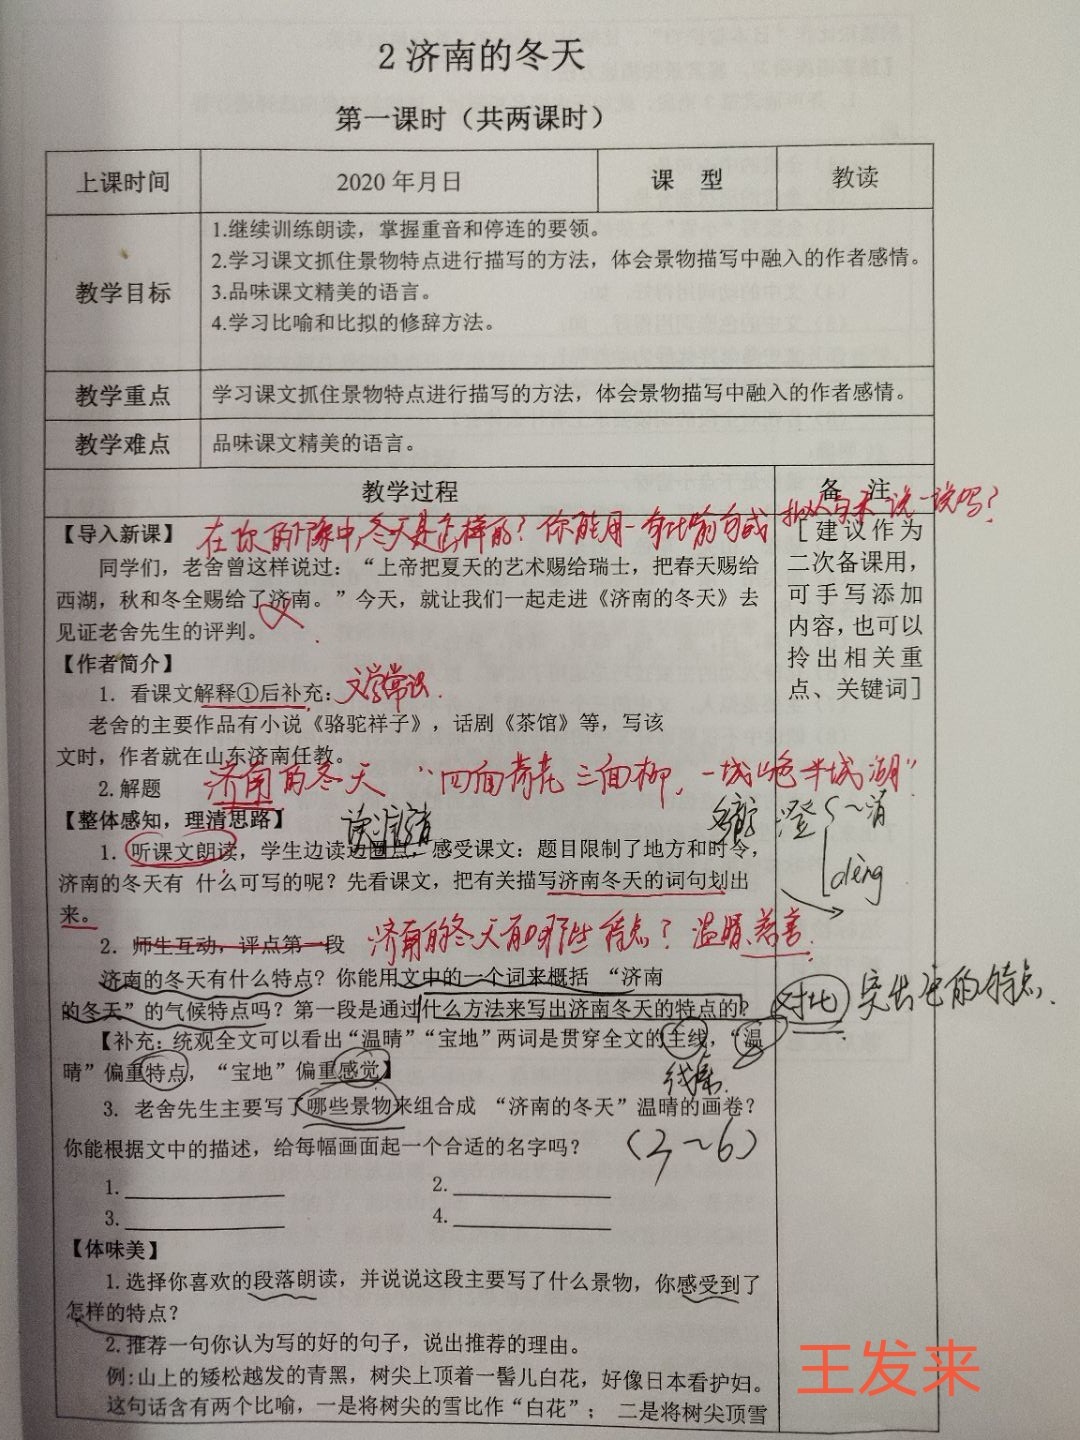 2 济南的冬天
第一课时（共两课时）
上课时间 2020 年月日 课 型 教读
教学目标
1.继续训练朗读，掌握重音和停连的要领。
2.学习课文抓住景物特点进行描写的方法，体会景物描写中融入的作者感情。
3.品味课文精美的语言。
4.学习比喻和比拟的修辞方法。
教学重点 学习课文抓住景物特点进行描写的方法，体会景物描写中融入的作者感情。
教学难点 品味课文精美的语言。
教学过程 备 注
在你的印象中，冬天是怎样的？你能用一句比喻句或拟人句来说一说吗？
【导入新课】
同学们，老舍曾这样说过：“上帝把夏天的艺术赐给瑞士，把春天赐给
西湖，秋和冬全赐给了济南。”今天，就让我们一起走进《济南的冬天》去
见证老舍先生的评判。
[建议作为
二次备课用，
可手写添加
内容，也可以
拎出相关重
点、关键词]
【作者简介】
1. 看课文解释①后补充： 文学常识.
老舍的主要作品有小说《骆驼祥子》，话剧《茶馆》等，写该
文时，作者就在山东济南任教。
2.解题 济南的冬天 “四面荷花三面柳，一城山色半城湖”
【整体感知，理清思路】
澄
dèng
1. 听课文朗读，学生边读边圈点，感受课文：题目限制了地方和时令，
济南的冬天有 什么可写的呢？先看课文，把有关描写济南冬天的词句划出
来。
2. 师生互动，评点第一段 济南的冬天有哪些特点？温晴 慈善.
济南的冬天有什么特点？你能用文中的一个词来概括 “济南
的冬天”的气候特点吗？第一段是通过什么方法来写出济南冬天的特点的？
对比 突出它的特点.
【补充：统观全文可以看出“温晴”“宝地”两词是贯穿全文的主线，“温
晴”偏重特点，“宝地”偏重感觉】
线索.
3. 老舍先生主要写了哪些景物来组合成 “济南的冬天”温晴的画卷？
你能根据文中的描述，给每幅画面起一个合适的名字吗？ （3～6）
1. 2.
3. 4.
【体味美】
1.选择你喜欢的段落朗读，并说说这段主要写了什么景物，你感受到了
怎样的特点？
2.推荐一句你认为写的好的句子，说出推荐的理由。
例：山上的矮松越发的青黑，树尖上顶着一髻儿白花，好像日本看护妇。
这句话含有两个比喻，一是将树尖的雪比作“白花”； 二是将树尖顶雪
王发来